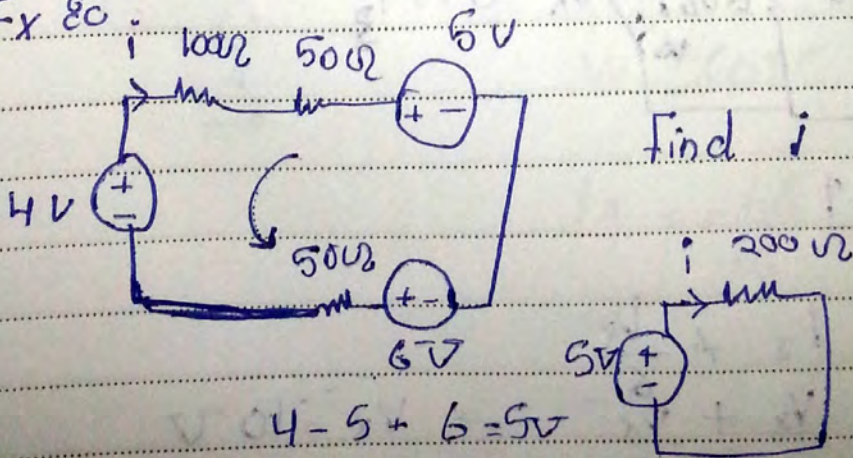 Ex 8o
i 100Ω 50Ω 5 V
+ -
Find i
4 V + -
50Ω + -
6 V
i 200 Ω
5V + -
4 - 5 + 6 = 5v